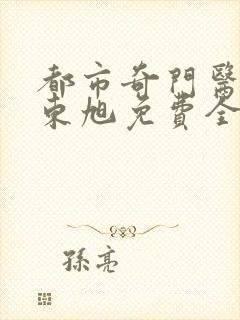 都市奇門醫
東旭免費全
孫亮